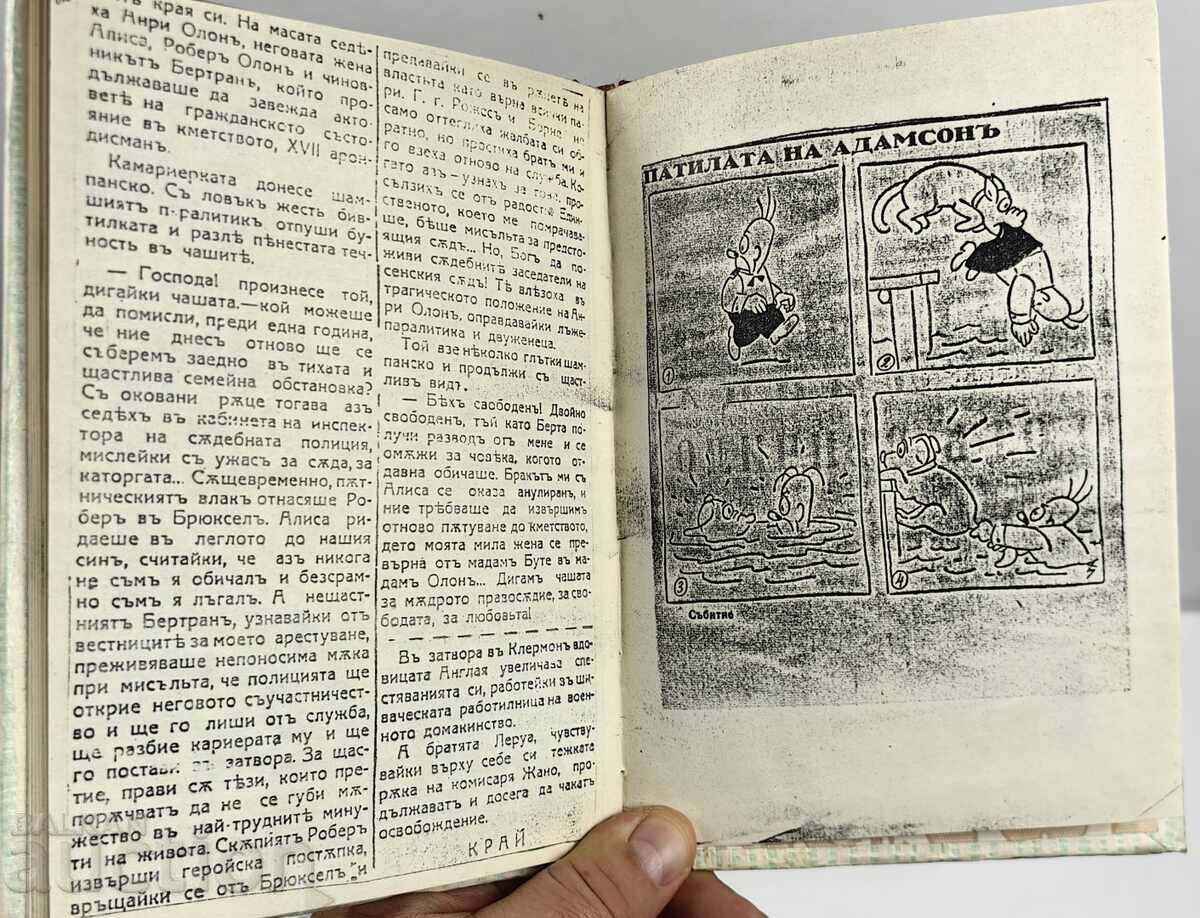 края си. На масата седѣ-
ха Анри Олонъ, неговата жена
Алиса, Роберъ Олонъ и чинов-
никътъ Бертранъ, който про-
дължаваше да завежда акто-
ветѣ на гражданското състо-
яние въ кметството, XVII арон-
дисманъ.
Камариерката донесе шам-
панско. Съ ловъкъ жестъ бив-
шиятъ паралитикъ отпуши бу-
тилката и разлѣ пѣнестата теч-
ность въ чашитѣ.
— Господа! произнесе той,
дигайки чашата.—кой можеше
да помисли, преди една година,
че ние днесъ отново ще се
съберемъ заедно въ тихата и
щастлива семейна обстановка?
Съ оковани рѫце тогава азъ
седѣхъ въ кабинета на инспек-
тора на сѫдебната полиция,
мислейки съ ужасъ за сѫда, за
каторгата... Сѫщевременно, пѫт-
ническиятъ влакъ отнасяше Ро-
беръ въ Брюкселъ. Алиса ри-
даеше въ леглото до нашия
синъ, считайки, че азъ никога
не съмъ я обичалъ и безсрам-
но съмъ я лъгалъ. А нещаст-
ниятъ Бертранъ, узнавайки отъ
вестницитѣ за моето арестуване,
преживяваше непоносима мѫка
при мисъльта, че полицията ще
открие неговото съучастничест-
во и ще го лиши отъ служба,
ще разбие кариерата му и ще
го постави въ затвора. За щас-
тие, прави сѫ тѣзи, които пре-
порѫчватъ да не се губи мѫ-
жество въ най-труднитѣ мину-
ти на живота. Скѫпиятъ Роберъ
извърши геройска постѫпка,
връщайки се отъ Брюкселъ и
предавайки се въ рѫцетѣ на
властьта като върна всички па-
ри. Г. г. Рожесъ и не
само оттеглиха жалбата си об-
ратно, но простиха братъ ми и
го взеха отново на служба. Ко-
гато азъ узнахъ за това, про-
сълзихъ се отъ радость! Един-
ственото, което ме помрачава-
ше, бѣше мисъльта за предсто-
ящия сѫдъ... Но, Богъ да по-
живи сѫдебнитѣ заседатели на
сенския сѫдъ! Тѣ влѣзоха въ
трагическото положение на Ан-
ри Олонъ, оправдавайки лъже-
паралитика и двуженеца.
Той взе нѣколко глътки шам-
панско и продължи съ щаст-
ливъ видъ.
— Бѣхъ свободенъ! Двойно
свободенъ, тъй като Берта по-
лучи разводъ отъ мене и се
омѫжи за човѣка, когото от-
давна обичаше. Бракътъ ми съ
Алиса се оказа анулиранъ, и
ние трѣбваше да извършимъ
отново пѫтуване до кметството,
дето моята мила жена се пре-
върна отъ мадамъ Буте въ ма-
дамъ Олонъ... Дигамъ чашата
за мѫдрото правосѫдие, за сво-
бодата, за любовьта!
Въ затвора въ Клермонъ вдо-
вицата Англая увеличава спе-
стяванията си, работейки въ ши-
ваческата работилница на воен-
ното домакинство.
А братята Леруа, чувству-
вайки върху себе си тежката
рѫка на комисаря Жано, про-
дължаватъ и досега да чакатъ
освобождение.
КРАЙ
ПАТИЛАТА НА АДАМСОНЪ
1
2
3
4
Събитие